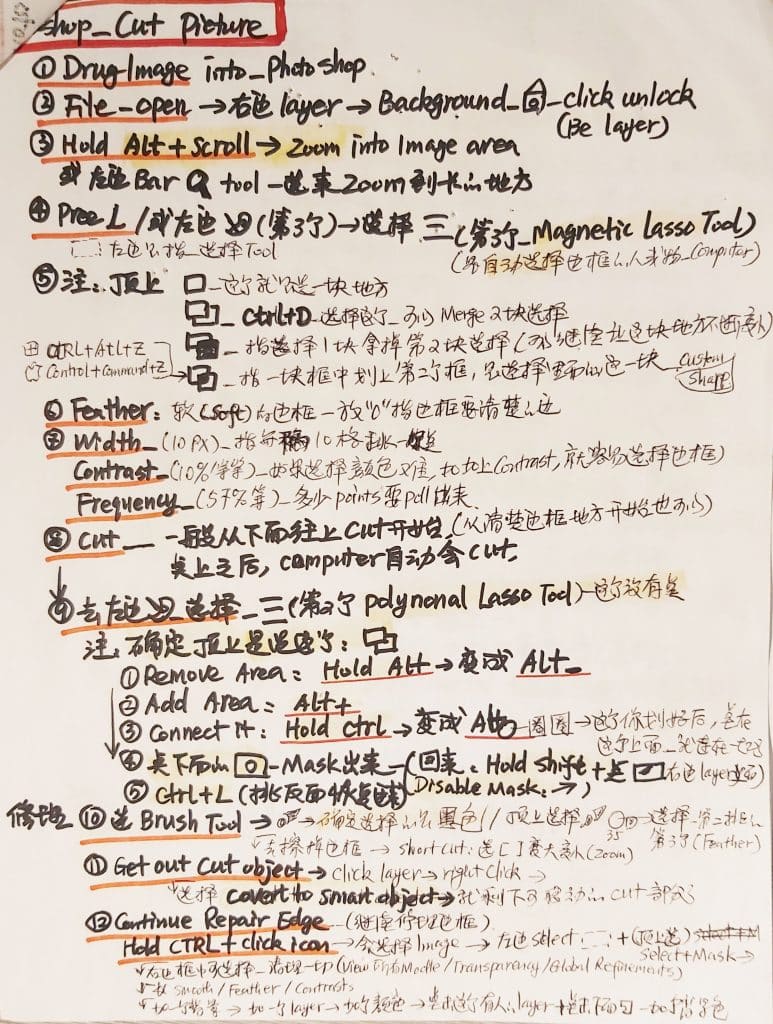 shop_Cut Picture
① Drug-Image into_Photoshop
② File_open → 右边 layer → Background_ _click unlock
(Be layer)
③ Hold Alt + scroll → Zoom into Image area
或左边 Bar tool 一 Zoom 到 的地方
④ Pree L / 或左边 (第3个) → 选择 三 (第3个_Magnetic Lasso Tool)
左边 _选择 Tool
(自动选择边框 Computer)
⑤ 注: 顶上 _这个就只是一块地方
_ Ctrl+D_选择这个_可以 Merge 2块选择
_指选择1块拿掉第2块选择
CtRL+AtL+Z
Control+Command+Z
_指一块框中划上第二个框, 只选择里面的这一块
custom shape
⑥ Feather: 软 (soft) 的边框 一 放"0"指边框要清楚的
⑦ Width_(10 px)_指每 10格
Contrast_(10%等等)_如果选择颜色又难, 加上 Contrast, 就容易选择边框)
Frequency_(57%等)_多少 points 要 pull 出来
⑧ Cut _ 一般是从下面往上 Cut 开始 (从清楚边框地方开始也可以)
点上之后, computer 自动会 Cut.
⑨ 去左边 _选择_三 (第2个 polynonal Lasso Tool) 这个没有点
注: 确定顶上是选这个:
① Remove Area: Hold Alt → 变成 Alt_
② Add Area: Alt+
③ Connect it: Hold Ctrl → 变成 圈圈 → 这个你划好后, 点在这个上面_就连在一起
④ 点下面的 -Mask 出来 (回来: Hold shift + 点 右边 layer
Disable Mask: →)
⑤ Ctrl+L
修理 ⑩ 选 Brush Tool → 确定选择 黑色 // 顶上选择 → 选择 第二排 第3个 (Feather)
↓ 去擦掉边框 → short cut: 选 [ ] 变大 (Zoom)
⑪ Get out Cut object → click layer → right click →
↓选择 covert to smart object → 就剩下可移动的 Cut 部分
⑫ Continue Repair Edge _ (继续修理边框)
Hold CTRL + click icon → 会选择 Image → 左边 select + (顶上选) Select+Mask →
↓右边框中可选择_清理一切 (View /Transparency/Global Refinements)
↓ Smooth/Feather/Contrasts
↓加一个背景 → 加一个 layer → 加个颜色 → 点击这个有人 layer + 点击下面 一 加个背景色